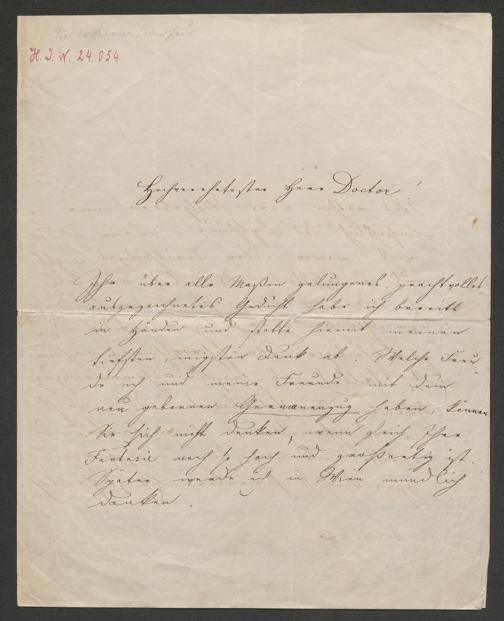 H. I. N. 24.054
Hochverehrtester Herr Doctor!
Ihr über alle Maßen gelungenes prachtvolles
ausgezeichnetes Gedicht habe ich bereits
in Händen und statte hiemit meinen
tiefsten, innigsten Dank ab. Welche Freu
de ich und meine Freunde mit dem
neu gebornen Germanenzug haben, können
Sie sich nicht denken, wenn gleich Ihre
Fantasie noch so hoch und großartig ist.
Später werde ich in Wien mündlich
danken.